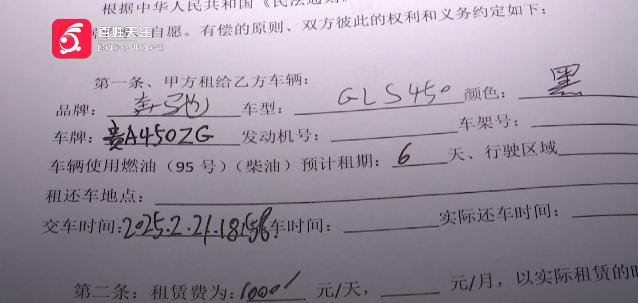 根据中华人民共和国《民法通则》
百姓关注
自愿。有偿的原则、双方彼此的权利和义务约定如下：
第一条、甲方租给乙方车辆：
品牌：奔驰 车型：GLS450 颜色：黑
车牌：贵A450ZG 发动机号： 车架号：
车辆使用燃油（95 号）（柴油）预计租期：6 天、行驶区域
租还车地点：
交车时间：2025.2.21.18:58 车时间： 实际还车时间：
第二条：租赁费为：1000 元/天， 元/月，以实际租赁的时